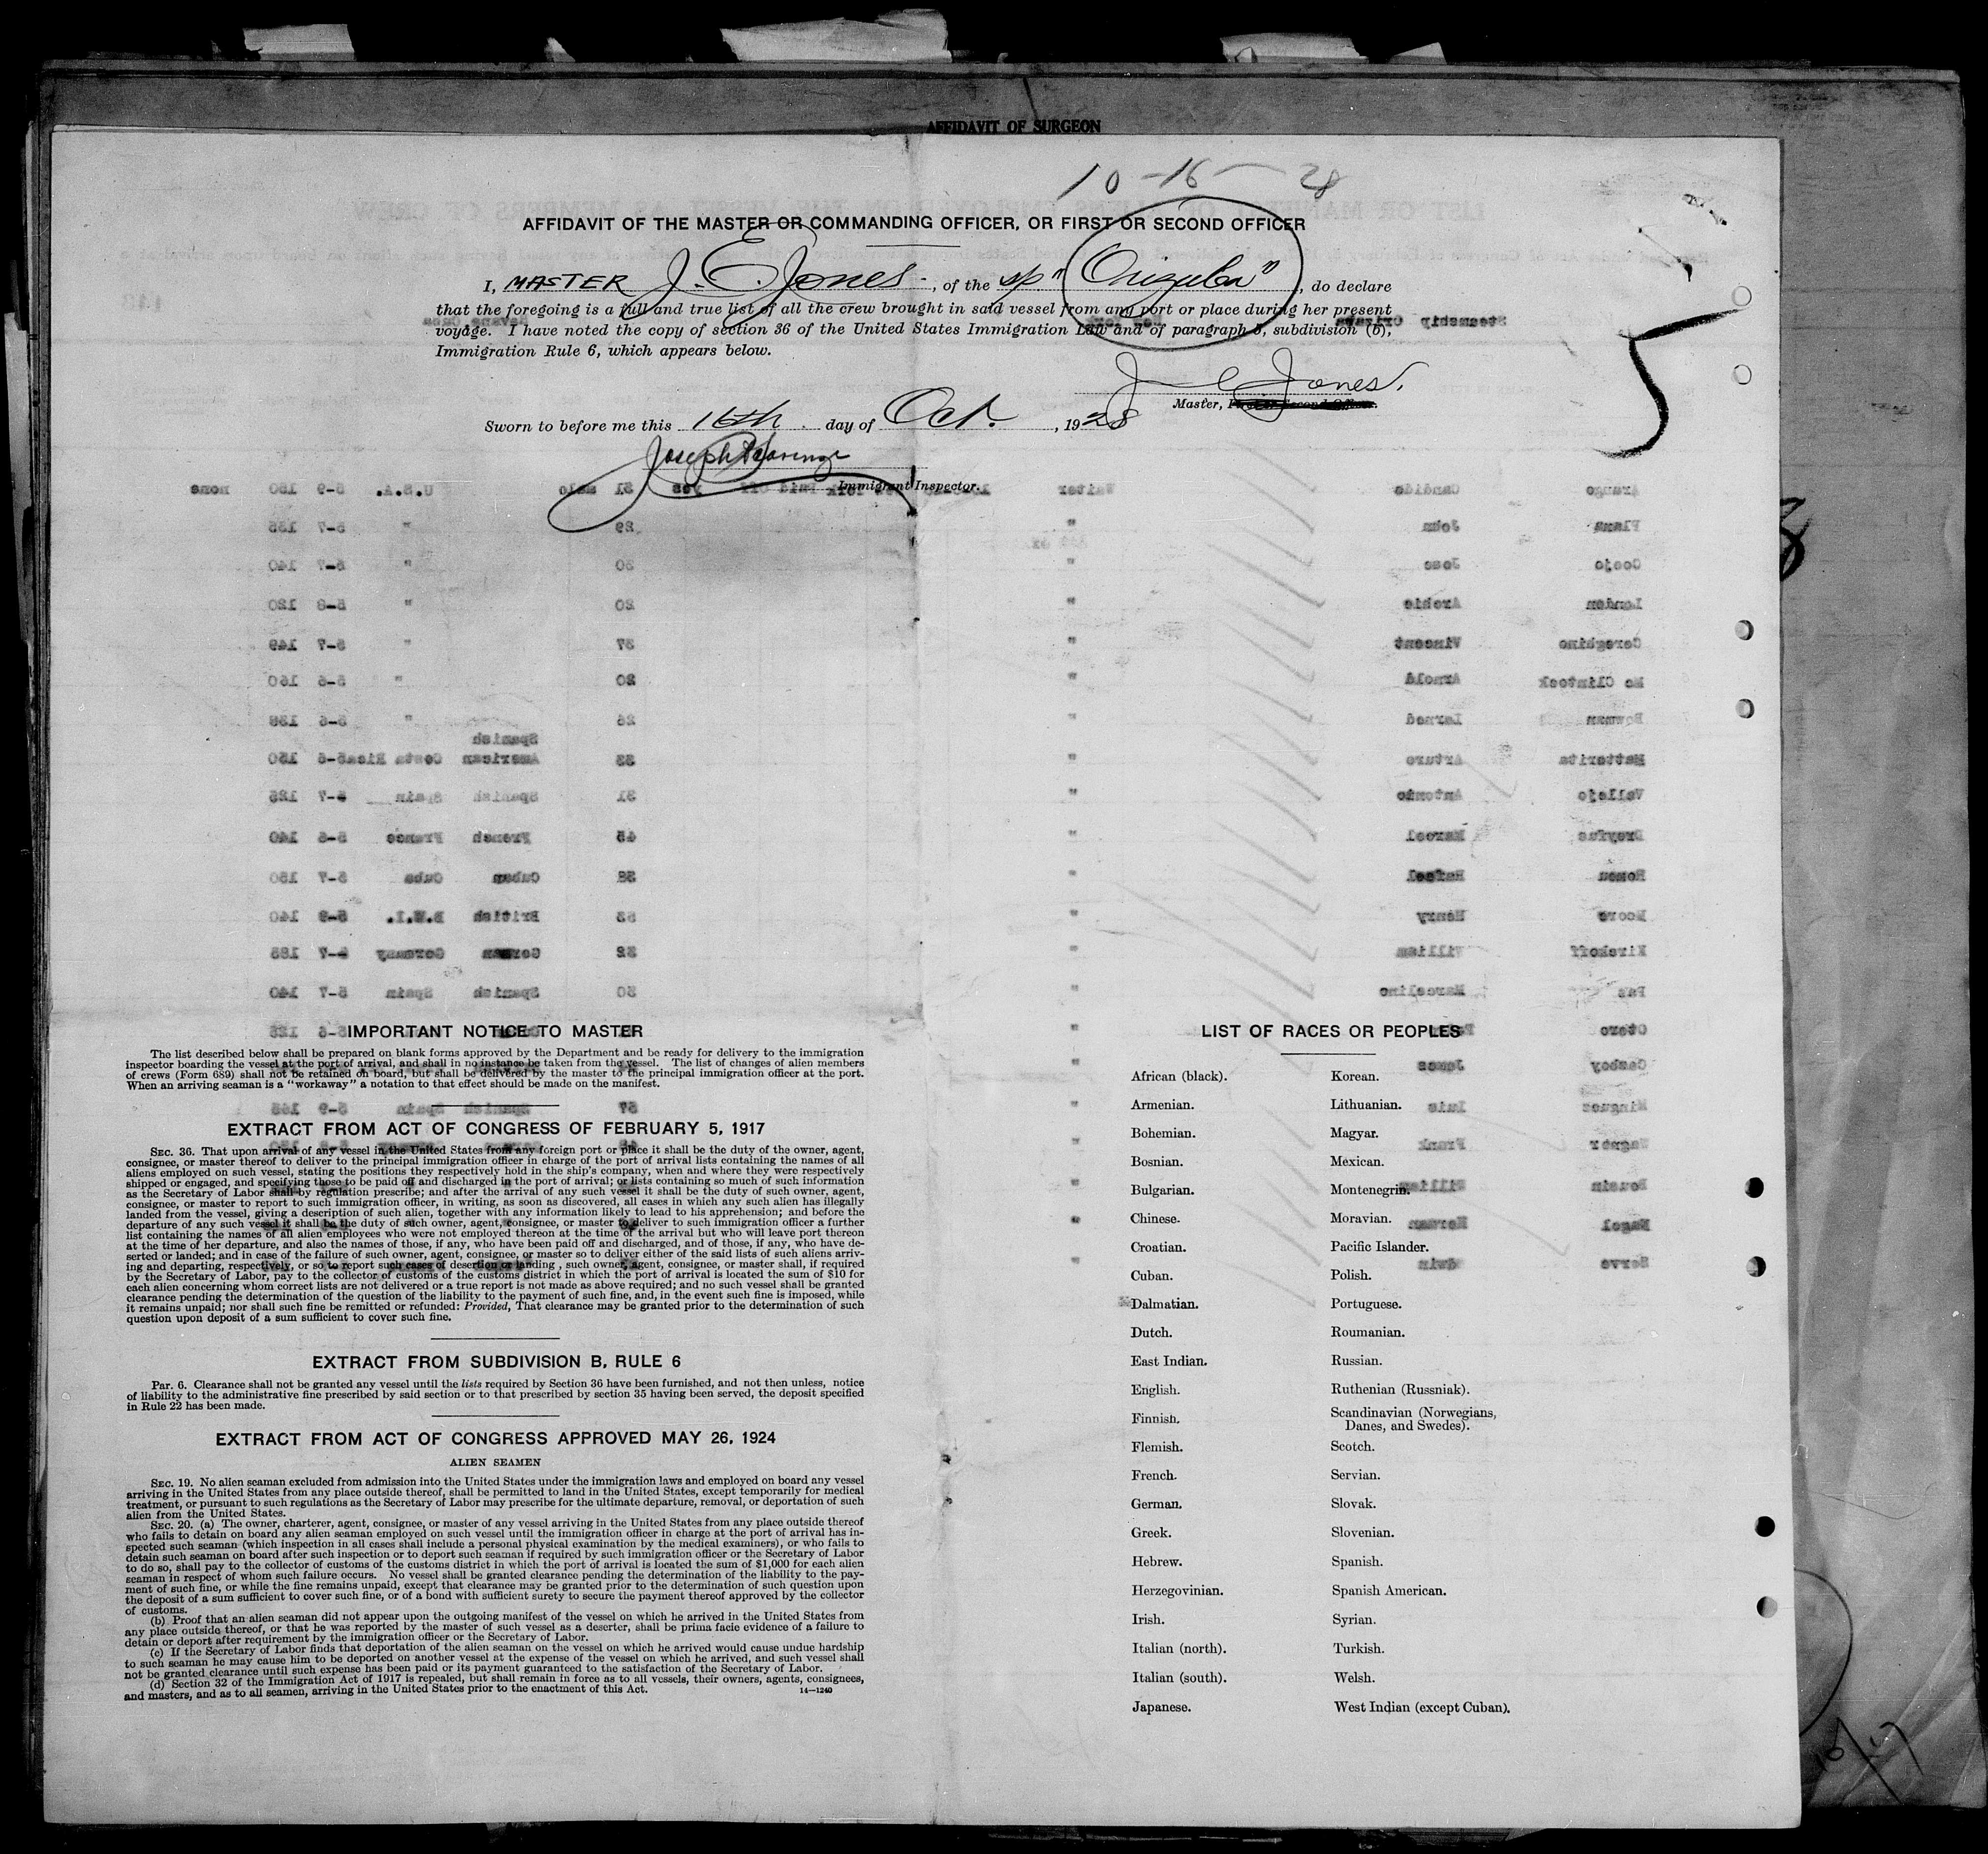 AFFIDAVIT OF SURGEON
10-16-28
AFFIDAVIT OF THE MASTER OR COMMANDING OFFICER, OR FIRST OR SECOND OFFICER
I, MASTER J. E. Jones, of the "Orizaba", do declare
that the foregoing is a full and true list of all the crew brought in said vessel from any port or place during her present
voyage. I have noted the copy of section 36 of the United States Immigration Law and of paragraph 5, subdivision (b),
Immigration Rule 6, which appears below.
5
J E Jones.
Master,
Sworn to before me this 16th day of Oct., 1928
Joseph
Immigrant Inspector.
IMPORTANT NOTICE TO MASTER
The list described below shall be prepared on blank forms approved by the Department and be ready for delivery to the immigration
inspector boarding the vessel at the port of arrival, and shall in no instance be taken from the vessel. The list of changes of alien members
of crews (Form 689) shall not be retained on board, but shall be delivered by the master to the principal immigration officer at the port.
When an arriving seaman is a "workaway" a notation to that effect should be made on the manifest.
EXTRACT FROM ACT OF CONGRESS OF FEBRUARY 5, 1917
SEC. 36. That upon arrival of any vessel in the United States from any foreign port or place it shall be the duty of the owner, agent,
consignee, or master thereof to deliver to the principal immigration officer in charge of the port of arrival lists containing the names of all
aliens employed on such vessel, stating the positions they respectively hold in the ship's company, when and where they were respectively
shipped or engaged, and specifying those to be paid off and discharged in the port of arrival; or lists containing so much of such information
as the Secretary of Labor shall by regulation prescribe; and after the arrival of any such vessel it shall be the duty of such owner, agent,
consignee, or master to report to such immigration officer, in writing, as soon as discovered, all cases in which any such alien has illegally
landed from the vessel, giving a description of such alien, together with any information likely to lead to his apprehension; and before the
departure of any such vessel it shall be the duty of such owner, agent, consignee, or master to deliver to such immigration officer a further
list containing the names of all alien employees who were not employed thereon at the time of the arrival but who will leave port thereon
at the time of her departure, and also the names of those, if any, who have been paid off and discharged, and of those, if any, who have de-
serted or landed; and in case of the failure of such owner, agent, consignee, or master so to deliver either of the said lists of such aliens arriv-
ing and departing, respectively, or so to report such cases of desertion or landing , such owner, agent, consignee, or master shall, if required
by the Secretary of Labor, pay to the collector of customs of the customs district in which the port of arrival is located the sum of $10 for
each alien concerning whom correct lists are not delivered or a true report is not made as above required; and no such vessel shall be granted
clearance pending the determination of the question of the liability to the payment of such fine, and, in the event such fine is imposed, while
it remains unpaid; nor shall such fine be remitted or refunded: Provided, That clearance may be granted prior to the determination of such
question upon deposit of a sum sufficient to cover such fine.
EXTRACT FROM SUBDIVISION B, RULE 6
Par. 6. Clearance shall not be granted any vessel until the lists required by Section 36 have been furnished, and not then unless, notice
of liability to the administrative fine prescribed by said section or to that prescribed by section 35 having been served, the deposit specified
in Rule 22 has been made.
EXTRACT FROM ACT OF CONGRESS APPROVED MAY 26, 1924
ALIEN SEAMEN
SEC. 19. No alien seaman excluded from admission into the United States under the immigration laws and employed on board any vessel
arriving in the United States from any place outside thereof, shall be permitted to land in the United States, except temporarily for medical
treatment, or pursuant to such regulations as the Secretary of Labor may prescribe for the ultimate departure, removal, or deportation of such
alien from the United States.
SEC. 20. (a) The owner, charterer, agent, consignee, or master of any vessel arriving in the United States from any place outside thereof
who fails to detain on board any alien seaman employed on such vessel until the immigration officer in charge at the port of arrival has in-
spected such seaman (which inspection in all cases shall include a personal physical examination by the medical examiners), or who fails to
detain such seaman on board after such inspection or to deport such seaman if required by such immigration officer or the Secretary of Labor
to do so, shall pay to the collector of customs of the customs district in which the port of arrival is located the sum of $1,000 for each alien
seaman in respect of whom such failure occurs. No vessel shall be granted clearance pending the determination of the liability to the pay-
ment of such fine, or while the fine remains unpaid, except that clearance may be granted prior to the determination of such question upon
the deposit of a sum sufficient to cover such fine, or of a bond with sufficient surety to secure the payment thereof approved by the collector
of customs.
(b) Proof that an alien seaman did not appear upon the outgoing manifest of the vessel on which he arrived in the United States from
any place outside thereof, or that he was reported by the master of such vessel as a deserter, shall be prima facie evidence of a failure to
detain or deport after requirement by the immigration officer or the Secretary of Labor.
(c) If the Secretary of Labor finds that deportation of the alien seaman on the vessel on which he arrived would cause undue hardship
to such seaman he may cause him to be deported on another vessel at the expense of the vessel on which he arrived, and such vessel shall
not be granted clearance until such expense has been paid or its payment guaranteed to the satisfaction of the Secretary of Labor.
(d) Section 32 of the Immigration Act of 1917 is repealed, but shall remain in force as to all vessels, their owners, agents, consignees,
and masters, and as to all seamen, arriving in the United States prior to the enactment of this Act.
14—1240
LIST OF RACES OR PEOPLES
African (black).
Armenian.
Bohemian.
Bosnian.
Bulgarian.
Chinese.
Croatian.
Cuban.
Dalmatian.
Dutch.
East Indian.
English.
Finnish.
Flemish.
French.
German.
Greek.
Hebrew.
Herzegovinian.
Irish.
Italian (north).
Italian (south).
Japanese.
Korean.
Lithuanian.
Magyar.
Mexican.
Montenegrin.
Moravian.
Pacific Islander.
Polish.
Portuguese.
Roumanian.
Russian.
Ruthenian (Russniak).
Scandinavian (Norwegians,
Danes, and Swedes).
Scotch.
Servian.
Slovak.
Slovenian.
Spanish.
Spanish American.
Syrian.
Turkish.
Welsh.
West Indian (except Cuban).
10/17